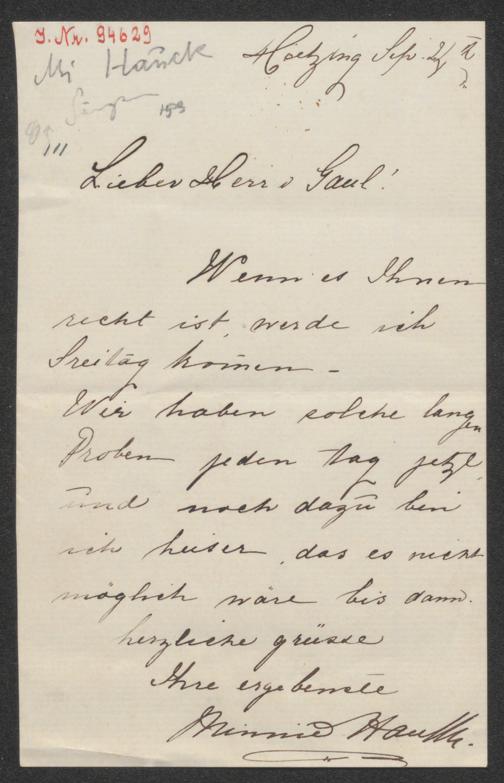 J. Nr. 94629
Mi Hauck
199
111
Hietzing Sep. 24
Lieber Herr v Gaul!
Wenn es Ihnen
recht ist, werde ich
Freitag kom̄en –
Wir haben solche langen
Proben jeden tag jetzt,
und noch dazu bin
ich heiser, das es nicht
möglich wäre bis dann.
herzliche grüsse
Ihre ergebenste
Minnie Hauk.